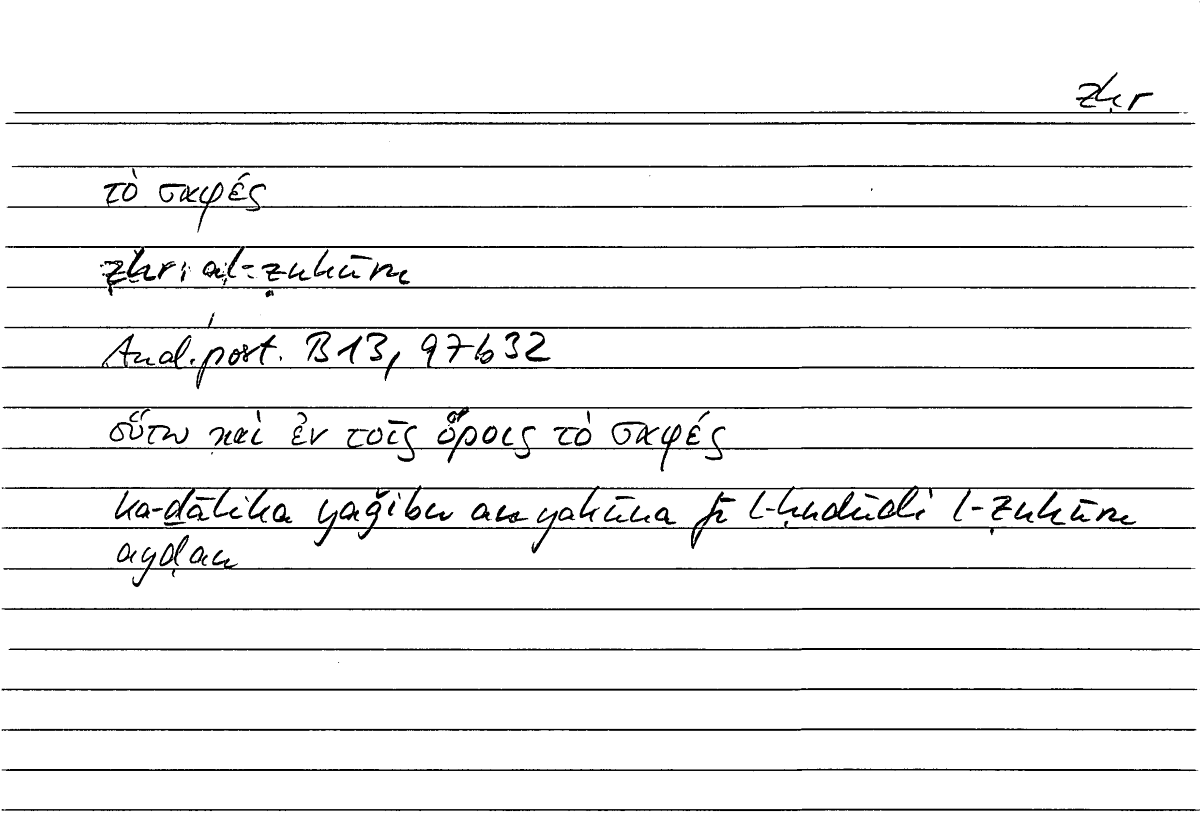 ẓhr
τὸ σαφές
ẓhr: al-ẓuhūru
Anal. post. B13, 97b32
οὕτω καὶ ἐν τοῖς ὅροις τὸ σαφές
ka-ḏālika yaǧibu an yakūna fī l-ḥudūdi l-ẓuhūru
ayḍan